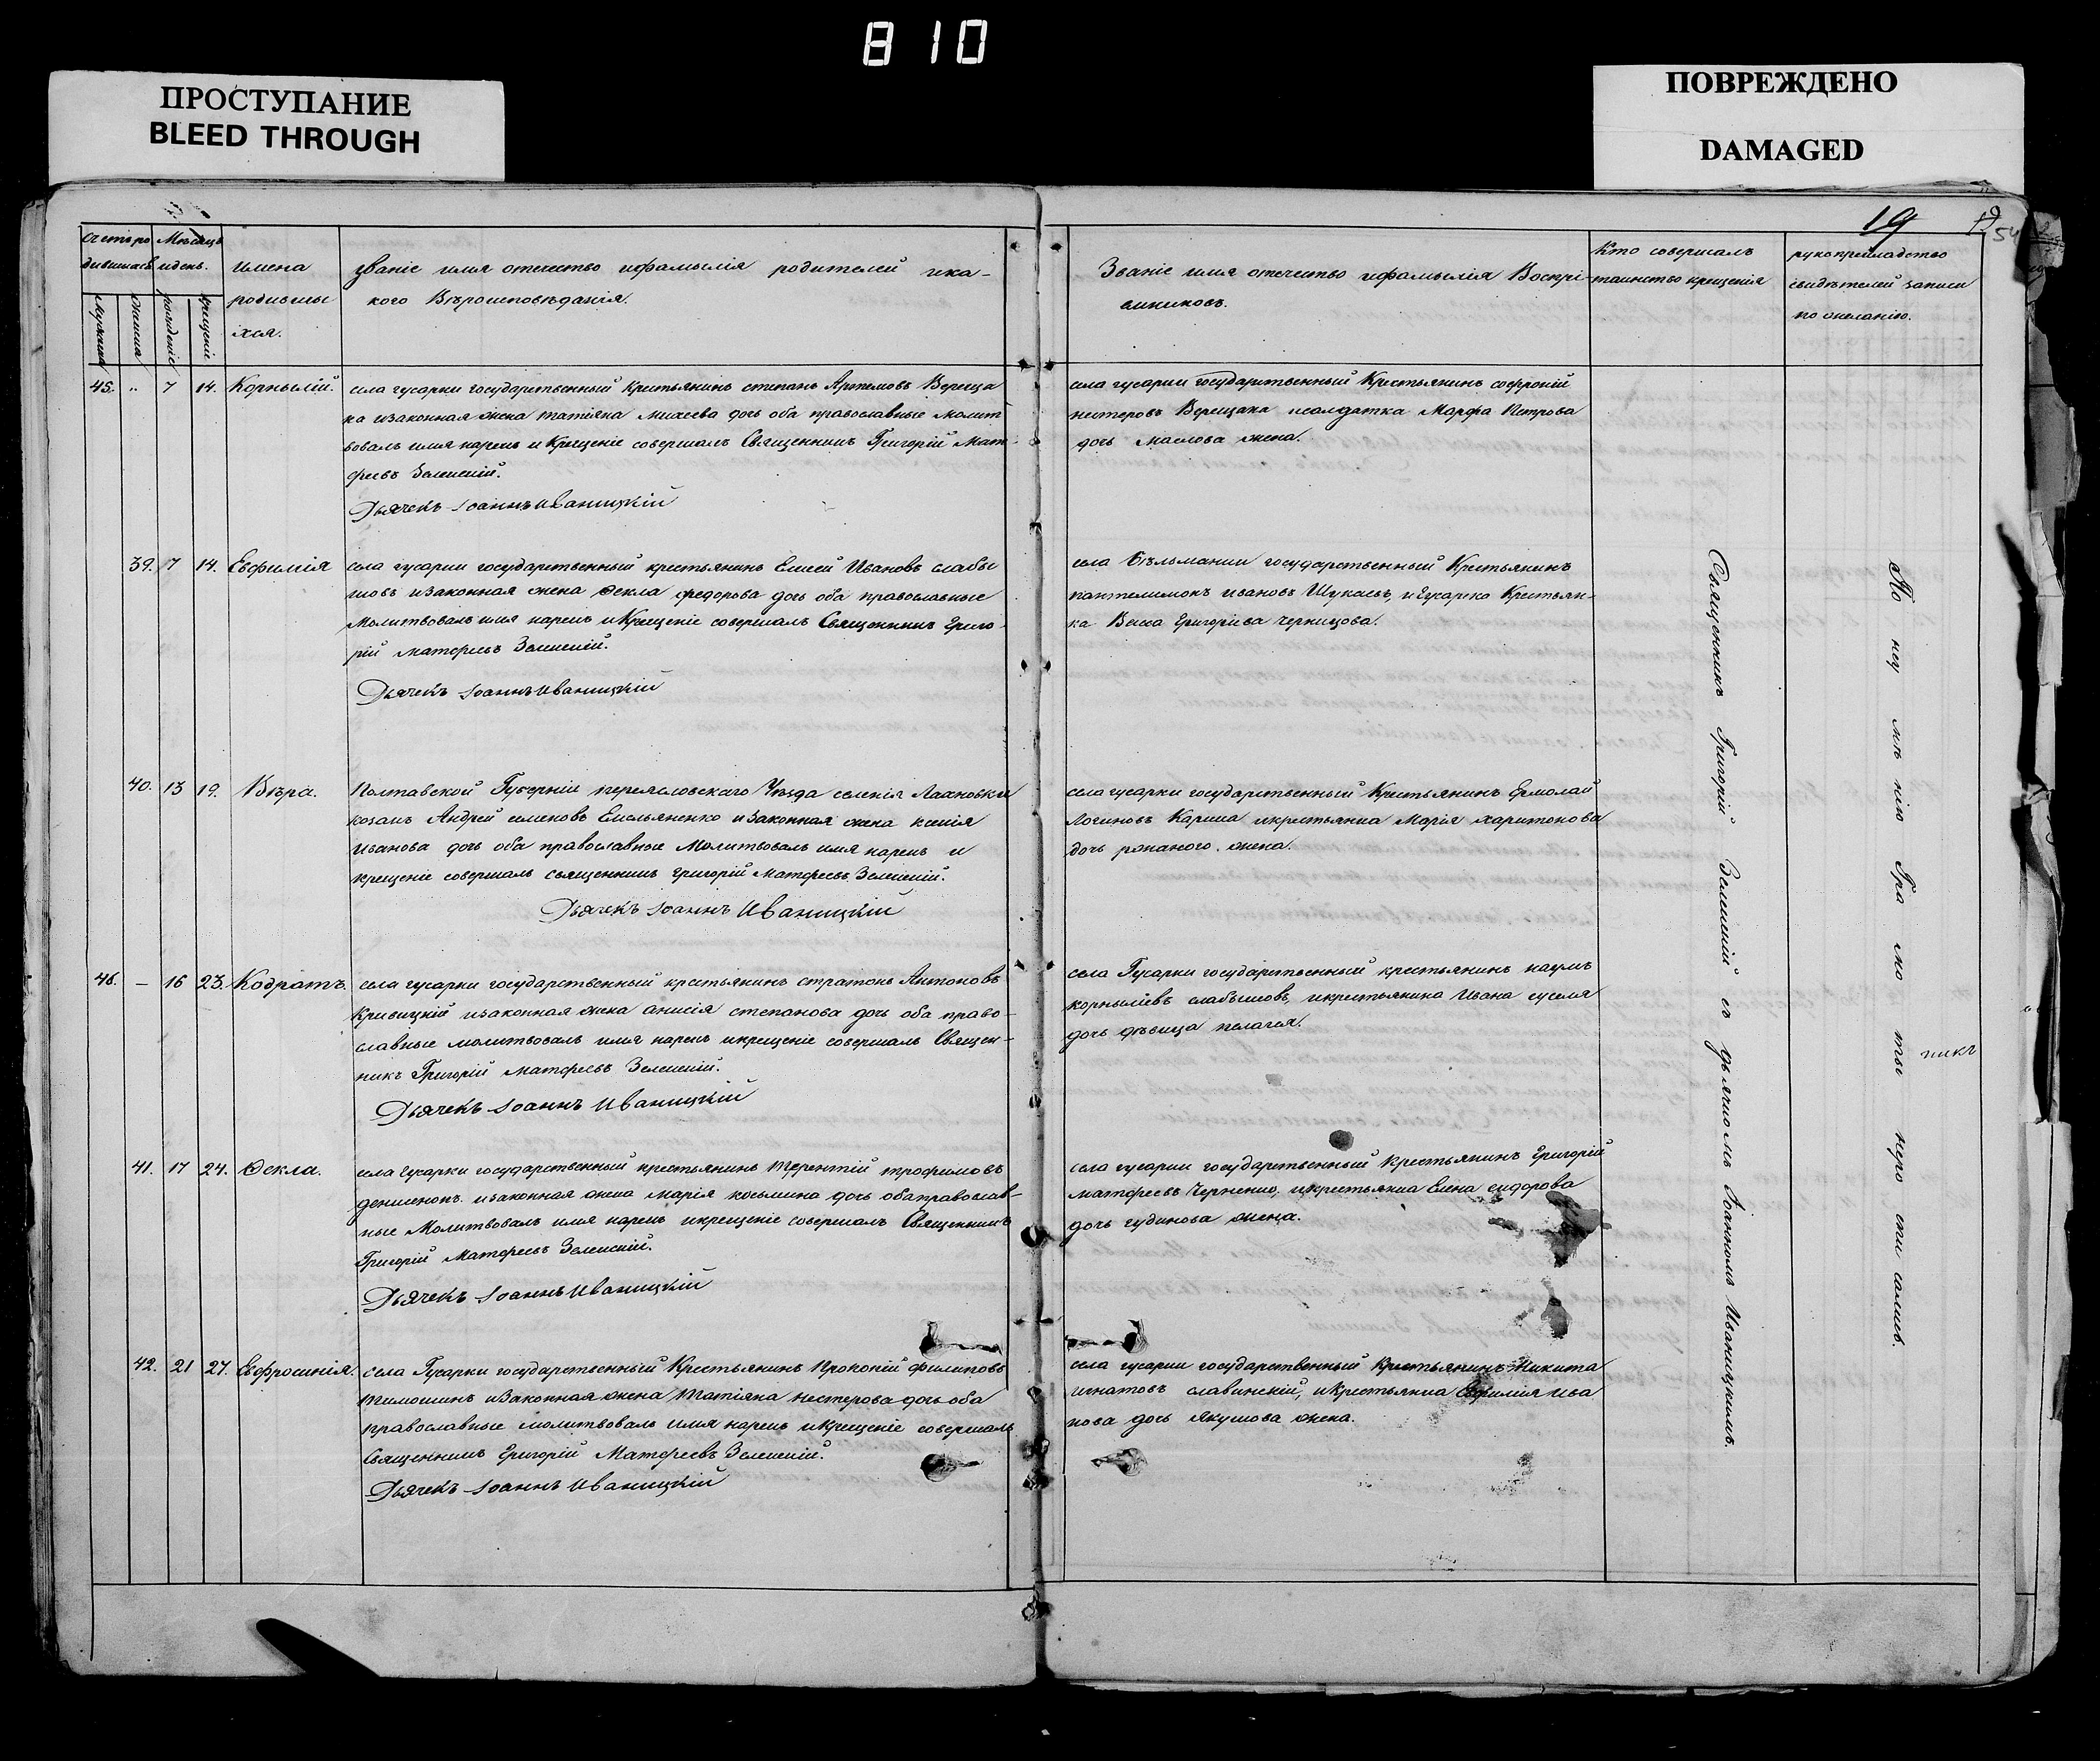 810
ПРОСТУПАНИЕ
BLEED THROUGH
ПОВРЕЖДЕНО
DAMAGED
19
54
Счетъ ро
дившихся
Мѣсяцъ
и день.
мужеска
женска
рожденіе
крещеніе
имена
родивши
хся.
званіе имя отечество ифамылія родителей ика-
кого Вѣроисповѣданія.
Званіе имя отечество ифамылія Воспрі-
емниковъ.
Кто совершалъ
таинство крещенія
рукоприкладство
свидѣтелей записи
по желанію.
45. „ 7 14. Корнылій.
села гусарки государственный Крестьянинъ степанъ Артемовъ Вереща
ка изаконная жена татіяна михеева дочь оба православные молит
вовалъ имя нарекъ и Крещеніе совершалъ Священникъ Григорій Мат-
феевъ Зеленскій.
Дьячекъ Іоаннъ Иваницкій
села гусарки государственный Крестьянинъ софроній
нестеровъ Верещака исолдатка Марфа Петрова
дочь маслова жена.
39. 7 14. Евфимія
села гусарки государственный крестьянинъ Елисей Ивановъ слабы
шовъ изаконная жена Ѳекла федорова дочь оба православные
Молитвовалъ имя нарекъ и Крещеніе совершалъ Священникъ Григо-
рій матфеевъ Зеленскій.
Дьячекъ Іоаннъ Иваницкій
села Бѣльманки государственный Крестьянинъ
пантелимонъ ивановъ и Гусарка Крестьян-
ка Васса Григоріева черницова.
40. 13 19. Вѣра.
Полтавской Губерніи переясловскаго Уѣзда селенія Лахновки
козакъ Андрей семеновъ Емельяненко изаконная жена ксенія
иванова дочь оба православные Молитвовалъ имя нарекъ и
крещеніе совершалъ священникъ григорій Матфеевъ Зеленскій.
Дьячекъ Іоаннъ Иваницкій
села гусарки государственный Крестьянинъ Ермолай
Логиновъ икрестьянка Марія харитонова
дочь жена.
46. — 16 23. Кодратъ.
села гусарки государственный крестьянинъ стратонъ Антоновъ
Кривицкій изаконная жена анисія степанова дочь оба право-
славные молитвовалъ имя нарекъ икрещеніе совершалъ Священ-
никъ Григорій матфеевъ Зеленскій.
Дьячекъ Іоаннъ Иваницкій
села Гусарки государственный крестьянинъ наумъ
корныліевъ слабышовъ, икрестьянина Ивана суселя
дочь дѣвица пелагея.
41. 17 24. Ѳекла.
села Гусарки государственный крестьянинъ терентій трофимовъ
денисенокъ изаконная жена марія косьмина дочь обаправослав-
ные Молитвовалъ имя нарекъ икрещеніе совершалъ Священникъ
Григорій Матфеевъ Зеленскій.
Дьячекъ Іоаннъ Иваницкій
села гусарки государственный крестьянинъ Григорій
матфеевъ Черненко, икрестьянка Елена сидорова
дочь гудинова жена.
42. 21 27. Евфросинія.
села Гусарки государственный Крестьянинъ Прокопій филиповъ
тимошинъ изаконная жена татіяна нестерова дочь оба
православные молитвовалъ имя нарекъ икрещеніе совершалъ
Священникъ Григорій Матфеевъ Зеленскій.
Дьячекъ Іоаннъ Иваницкій
села гусарки государственный Крестьянинъ Никита
игнатовъ славинскій, икрестьянка Евфимія ива
нова дочь якушова жена.
Священникъ Григорій Зеленскій съ дьячкомъ Іоанномъ Иваницкимъ.
По неу мѣ нію Гра мо ты